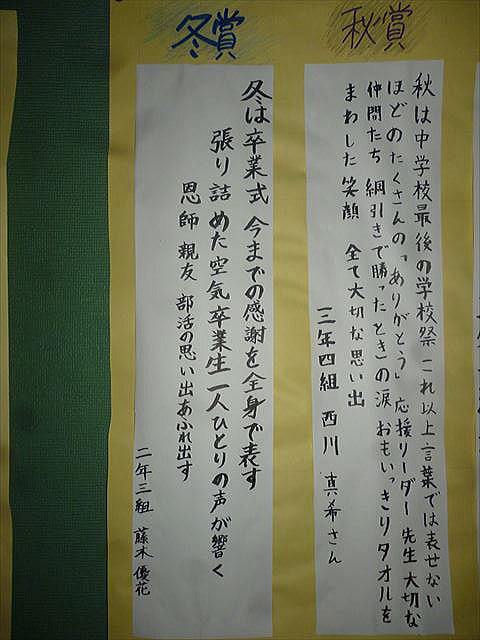 秋賞
秋は中学校最後の学校祭 これ以上言葉では表せない
ほどのたくさんの「ありがとう」 応援リーダー 先生 大切な
仲間たち 綱引きで勝ったときの涙 おもいっきりタオルを
まわした笑顔 全て大切な思い出
三年四組 西川 真希さん
冬賞
冬は卒業式 今までの感謝を全身で表す
張り詰めた空気 卒業生一人ひとりの声が響く
恩師 親友 部活の思い出あふれ出す
二年三組 藤木 優花